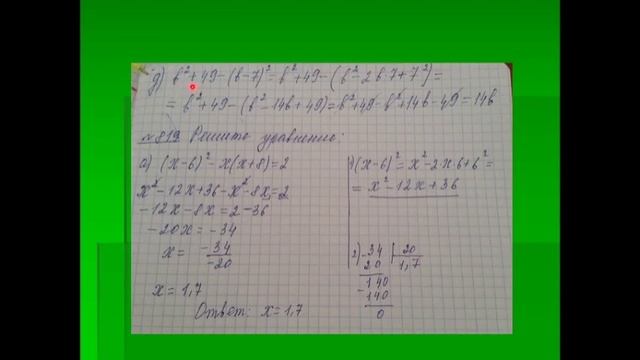 д) b²+49-(b-7)²=b²+49-(b²-2b·7+7²)=
=b²+49-(b²-14b+49)=b²+49-b²+14b-49=14b
№819 Решите уравнение:
а) (x-6)²-x(x+8)=2
x²-12x+36-x²-8x=2
-12x-8x=2-36
-20x=-34
x= -34/-20
x=1,7
Ответ: x=1,7
1)(x-6)²=x²-2·x·6+6²=
=x²-12x+36
2) 34 | 20
20 | 1,7
140
-140
0